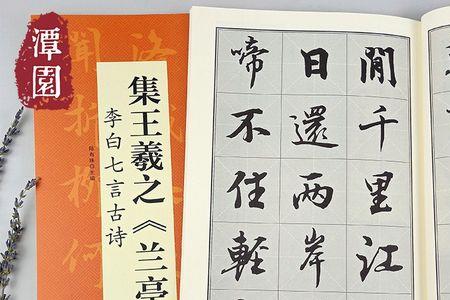 潭園
集王羲之《兰亭
李白七言古诗
陆有珠 主编
間千里江
日還两岸
啼不住輕